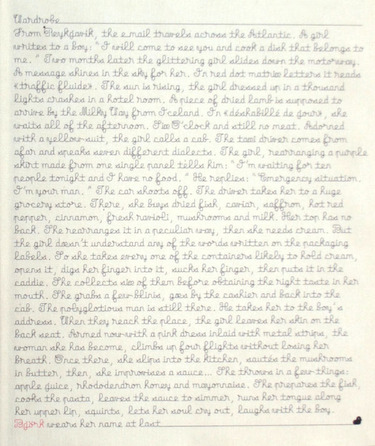 Wardrobe
From Reykjavik, the e.mail travels across the Atlantic. A girl
writes to a boy: "I will come to see you and cook a dish that belongs to
me." Two months later the glittering girl slides down the motorway.
A message shines in the sky for her. In red dot matrix letters it reads
«traffic fluide». The sun is rising, the girl dressed up in a thousand
lights crashes in a hotel room. A piece of dried lamb is supposed to
arrive by the Milky Way from Iceland. In «déshabillé de jour», she
waits all of the afternoon. Five O'clock and still no meat. Adorned
with a yellow suit, the girl calls a cab. The taxi driver comes from
afar and speaks seven different dialects. The girl, rearranging a purple
skirt made from one single panel tells him: "I'm waiting for ten
people tonight and I have no food." He replies: "Emergency situation.
I'm your man." The car shoots off. The driver takes her to a huge
grocery store. There, she buys dried fish, caviar, saffron, hot red
pepper, cinnamon, fresh ravioli, mushrooms and milk. Her top has no
back. She rearranges it in a peculiar way, then she needs cream. But
the girl doesn't understand any of the words written on the packaging
labels. So she takes every one of the containers likely to hold cream,
opens it, digs her finger into it, sucks her finger, then puts it in the
caddie. She collects six of them before obtaining the right taste in her
mouth. She grabs a few blinis, goes by the cashier and back into the
cab. The polyglotious man is still there. He takes her to the boy's
address. When they reach the place, the girl leaves her skin on the
back seat. Armed now with a pink dress inlaid with metal strips, the
woman she has become, climbs up four flights without losing her
breath. Once there, she slips into the kitchen, sautés the mushrooms
in butter, then, she improvises a sauce... She throws in a few things:
apple juice, rhododendron honey and mayonnaise. She prepares the fish,
cooks the pasta, leaves the sauce to simmer, runs her tongue along
her upper lip, squints, lets her soul cry out, laughs with the boy.
Björk wears her name at last